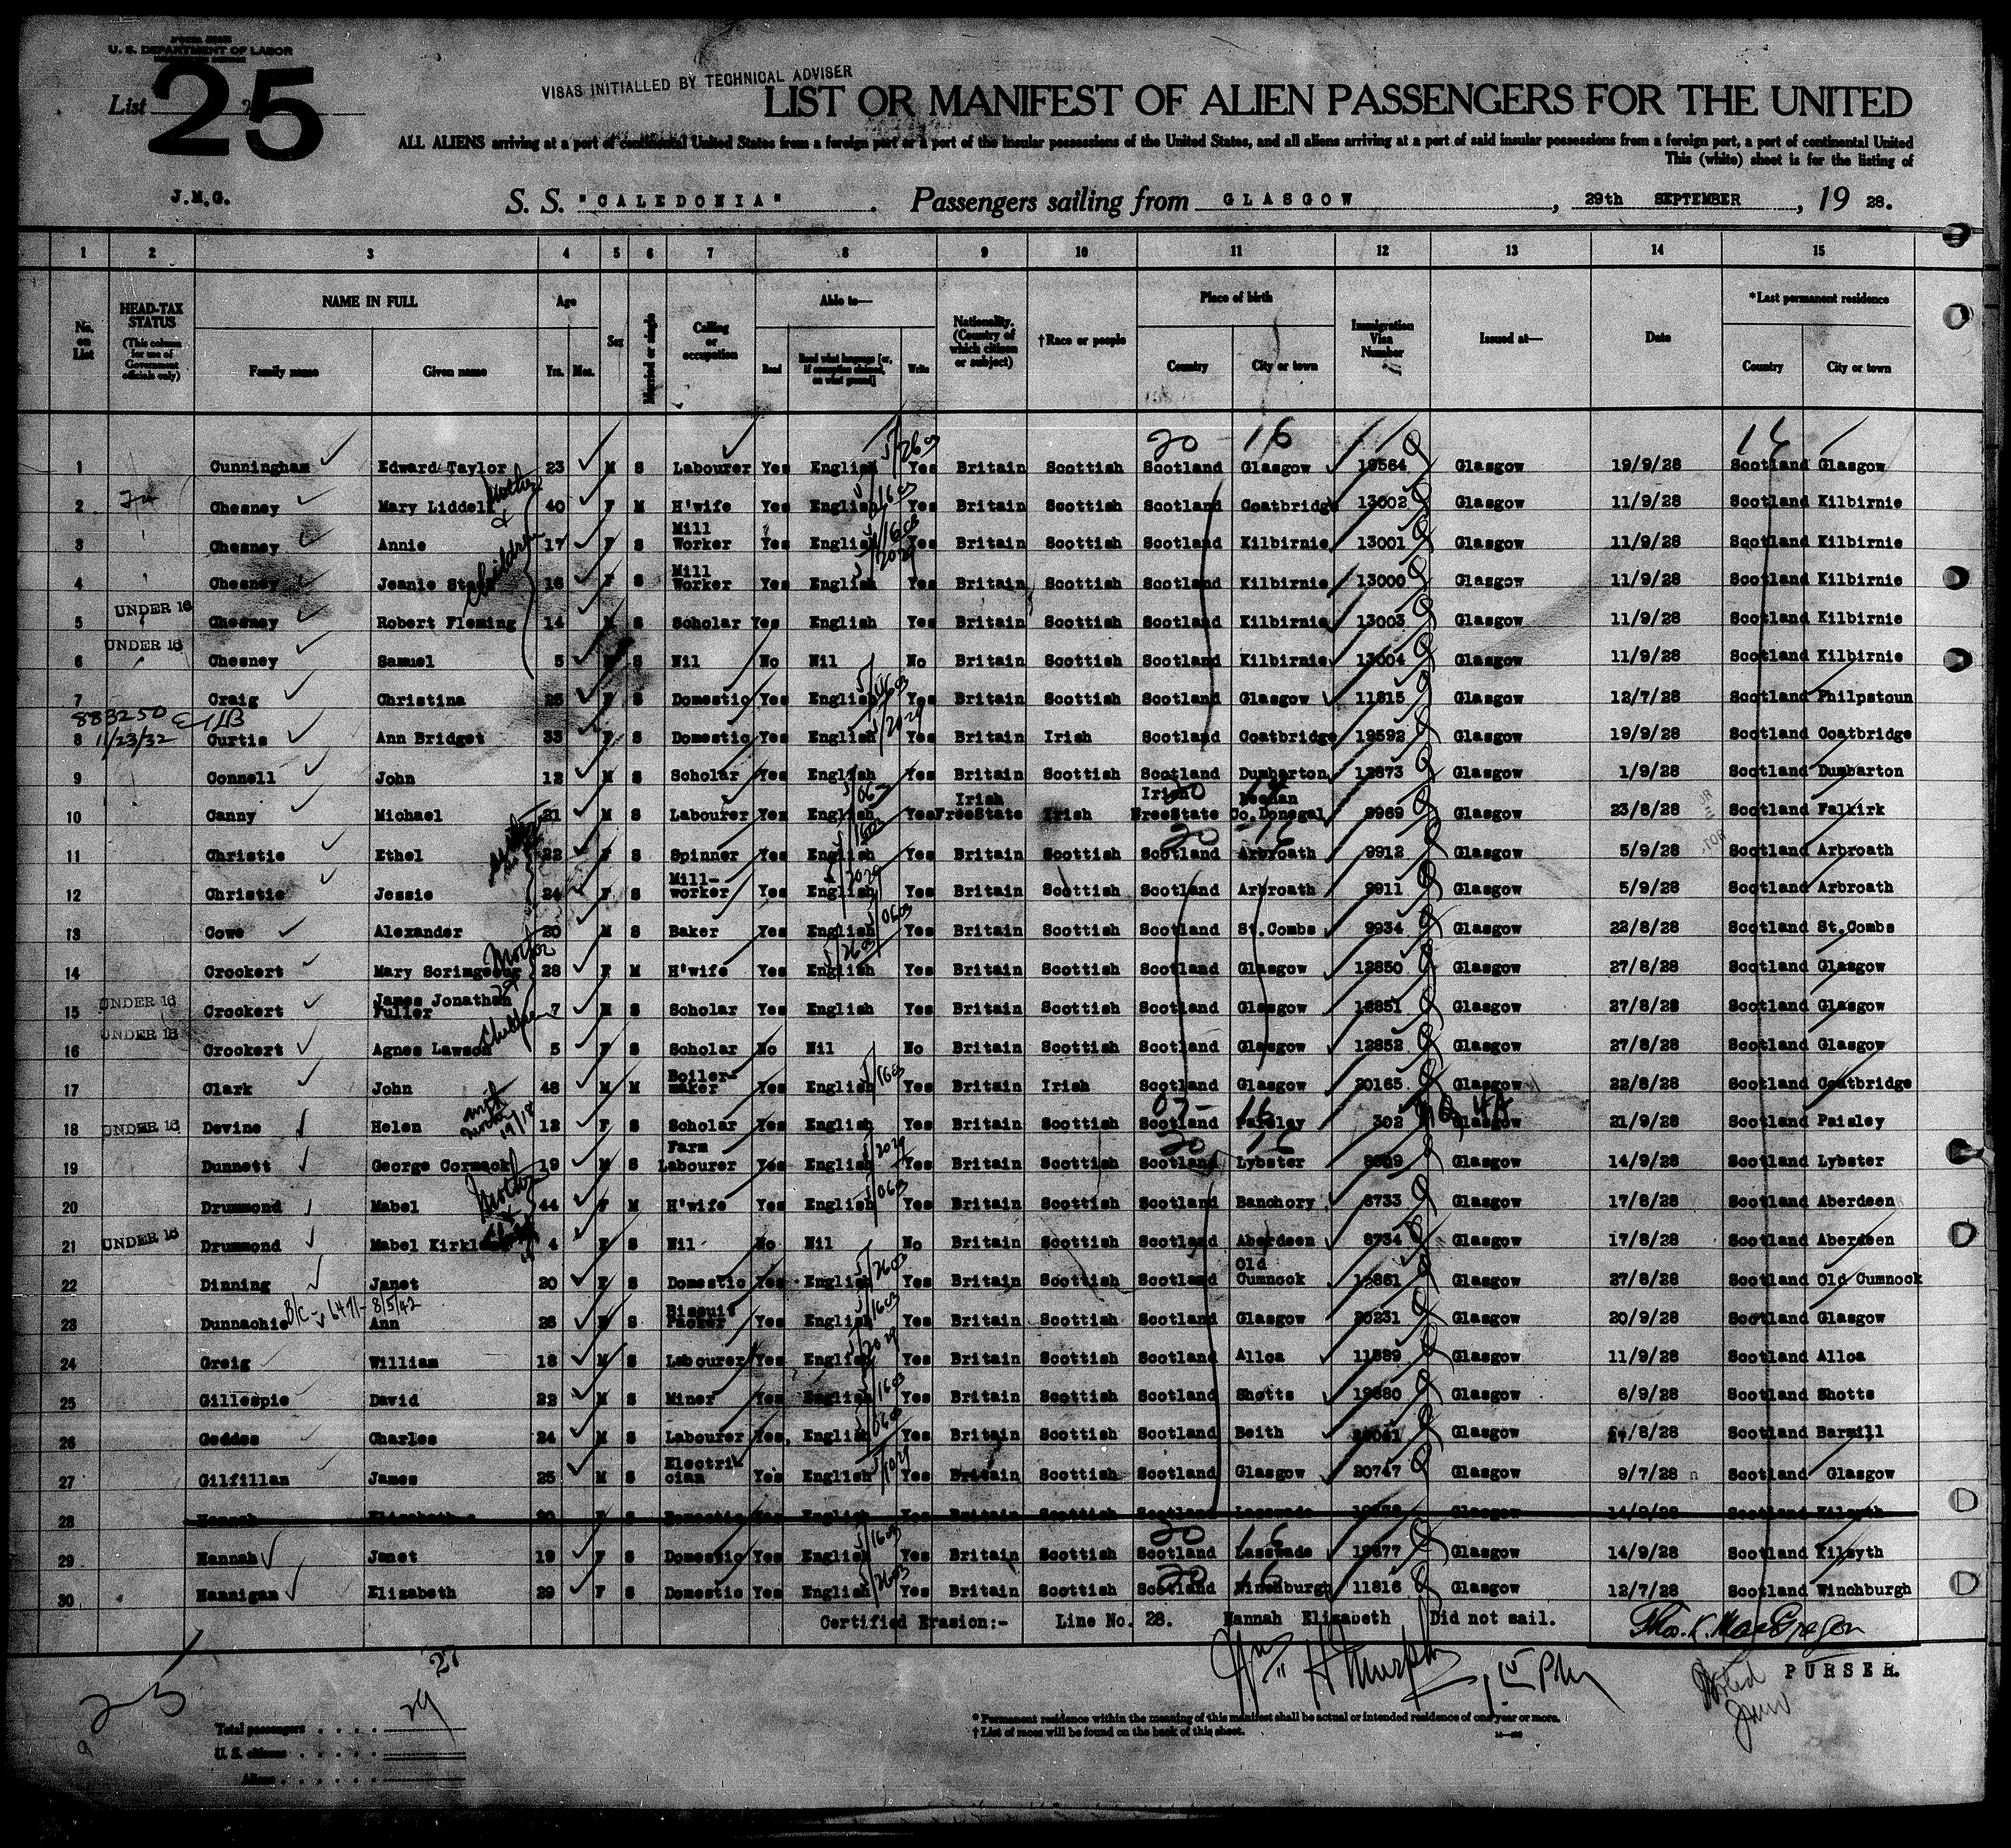 U. S. DEPARTMENT OF LABOR
List 25
VISAS INITIALLED BY TECHNICAL ADVISER
LIST OR MANIFEST OF ALIEN PASSENGERS FOR THE UNITED
ALL ALIENS arriving at a port of continental United States from a foreign port or a port of the insular possessions of the United States, and all aliens arriving at a port of said insular possessions from a foreign port, a port of continental United
This (white) sheet is for the listing of
J.M.G.
S. S. "CALEDONIA" Passengers sailing from GLASGOW, 29th SEPTEMBER, 19 28.
1 2 3 4 5 6 7 8 9 10 11 12 13 14 15
No. on List
HEAD-TAX STATUS (This column for use of Government officials only)
NAME IN FULL Family name Given name
Age Yrs. Mos.
Sex
Married or single
Calling or occupation
Able to— Read Read what language [or, if exemption claimed, on what ground] Write
Nationality. (Country of which citizen or subject)
†Race or people
Place of birth Country City or town
Immigration Visa Number
Issued at—
Date
*Last permanent residence Country City or town
20 - 16 16
1 Cunningham Edward Taylor 23 M S Labourer Yes English Yes Britain Scottish Scotland Glasgow 19564 Glasgow 19/9/28 Scotland Glasgow
2 Chesney Mary Liddell Mother & 40 F M H'wife Yes English Yes Britain Scottish Scotland Coatbridge 13002 Glasgow 11/9/28 Scotland Kilbirnie
3 Chesney Annie children 17 F S Mill Worker Yes English Yes Britain Scottish Scotland Kilbirnie 13001 Glasgow 11/9/28 Scotland Kilbirnie
4 Chesney Jeanie 16 F S Mill Worker Yes English Yes Britain Scottish Scotland Kilbirnie 13000 Glasgow 11/9/28 Scotland Kilbirnie
UNDER 16
5 Chesney Robert Fleming 14 M S Scholar Yes English Yes Britain Scottish Scotland Kilbirnie 13003 Glasgow 11/9/28 Scotland Kilbirnie
UNDER 16
6 Chesney Samuel 5 M S Nil No Nil No Britain Scottish Scotland Kilbirnie 13004 Glasgow 11/9/28 Scotland Kilbirnie
7 Craig Christina F S Domestic Yes English Yes Britain Scottish Scotland Glasgow 11815 Glasgow 12/7/28 Scotland Philpstoun
883250
8 11/23/32 Curtis Ann Bridget 33 F S Domestic Yes English Yes Britain Irish Scotland Coatbridge 19592 Glasgow 19/9/28 Scotland Coatbridge
9 Connell John 12 M S Scholar Yes English Yes Britain Scottish Scotland Dumbarton 12873 Glasgow 1/9/28 Scotland Dumbarton
10 Canny Michael 21 M S Labourer Yes English Yes Irish FreeState Irish Irish FreeState Co.Donegal 9969 Glasgow 23/8/28 Scotland Falkirk
11 Christie Ethel 22 F S Spinner Yes English Yes Britain Scottish Scotland Arbroath 9912 Glasgow 5/9/28 Scotland Arbroath
12 Christie Jessie 24 F S Mill-worker Yes English Yes Britain Scottish Scotland Arbroath 9911 Glasgow 5/9/28 Scotland Arbroath
13 Cowe Alexander 20 M S Baker Yes English Yes Britain Scottish Scotland St.Combs 9934 Glasgow 22/8/28 Scotland St.Combs
14 Crockert Mary Scrimgeour Mother 28 F M H'wife Yes English Yes Britain Scottish Scotland Glasgow 12850 Glasgow 27/8/28 Scotland Glasgow
15 UNDER 16 Crockert James Jonathan Fuller 7 M S Scholar Yes English Yes Britain Scottish Scotland Glasgow 12851 Glasgow 27/8/28 Scotland Glasgow
UNDER 16
16 Crockert Agnes Lawson children 5 F S Scholar No Nil No Britain Scottish Scotland Glasgow 12852 Glasgow 27/8/28 Scotland Glasgow
17 Clark John 48 M M Boiler-maker Yes English Yes Britain Irish Scotland Glasgow 20165 Glasgow 22/8/28 Scotland Coatbridge
07- 16
18 UNDER 16 Devine Helen 12 F S Scholar Yes English Yes Britain Scottish Scotland Paisley 302 Glasgow 21/9/28 Scotland Paisley
20 16
19 Dunnett George Cormack 19 M S Farm Labourer Yes English Yes Britain Scottish Scotland Lybster Glasgow 14/9/28 Scotland Lybster
20 Drummond Mabel Mother 44 F M H'wife Yes English Yes Britain Scottish Scotland Banchory 8733 Glasgow 17/8/28 Scotland Aberdeen
21 UNDER 16 Drummond Mabel 4 F S Nil No Nil No Britain Scottish Scotland Aberdeen 8734 Glasgow 17/8/28 Scotland Aberdeen
22 Dinning Janet 20 F S Domestic Yes English Yes Britain Scottish Scotland Old Cumnock 12861 Glasgow 27/8/28 Scotland Old Cumnock
23 Dunnachie Ann 26 F S Biscuit Packer Yes English Yes Britain Scottish Scotland Glasgow 20231 Glasgow 20/9/28 Scotland Glasgow
24 Greig William 18 M S Labourer Yes English Yes Britain Scottish Scotland Alloa 11589 Glasgow 11/9/28 Scotland Alloa
25 Gillespie David 22 M S Miner Yes English Yes Britain Scottish Scotland Shotts Glasgow 6/9/28 Scotland Shotts
26 Geddes Charles 24 M S Labourer Yes English Yes Britain Scottish Scotland Beith Glasgow /8/28 Scotland Barmill
27 Gilfillan James 25 M S Electrician Yes English Yes Britain Scottish Scotland Glasgow 20747 Glasgow 9/7/28 Scotland Glasgow
28 Hannah Elizabeth F S Domestic Yes English Yes Britain Scottish Scotland Lasswade Glasgow 14/9/28 Scotland Kilsyth
20 16
29 Hannah Janet 19 F S Domestic Yes English Yes Britain Scottish Scotland Lasswade 19877 Glasgow 14/9/28 Scotland Kilsyth
20 16
30 Hannigan Elizabeth 29 F S Domestic Yes English Yes Britain Scottish Scotland Winchburgh 11816 Glasgow 12/7/28 Scotland Winchburgh
Certified Erasion:- Line No. 28. Hannah Elizabeth Did not sail.
Thos. K. MacGregor
PURSER.
Wm H Murphy
Total passengers 29
U. S. citizens
Aliens
* Permanent residence within the meaning of this manifest shall be actual or intended residence of one year or more.
† List of races will be found on the back of this sheet.